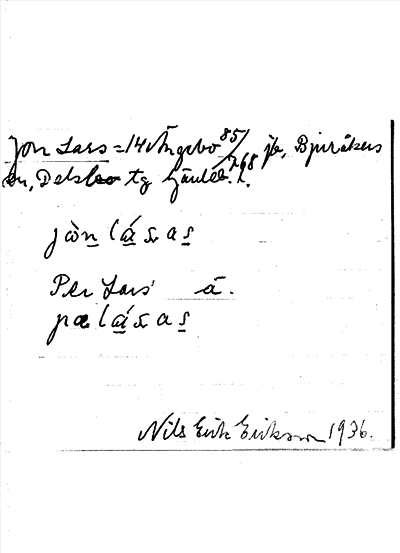 Jon Lars = 14 Ängebo 85/768 jb, Bjuråkers
sn, Delsbo tg Gävleb. l.
jòn lá s a s
Per Lars' å.
pæ lá s a s
Nils Erik Eriksson 1936.